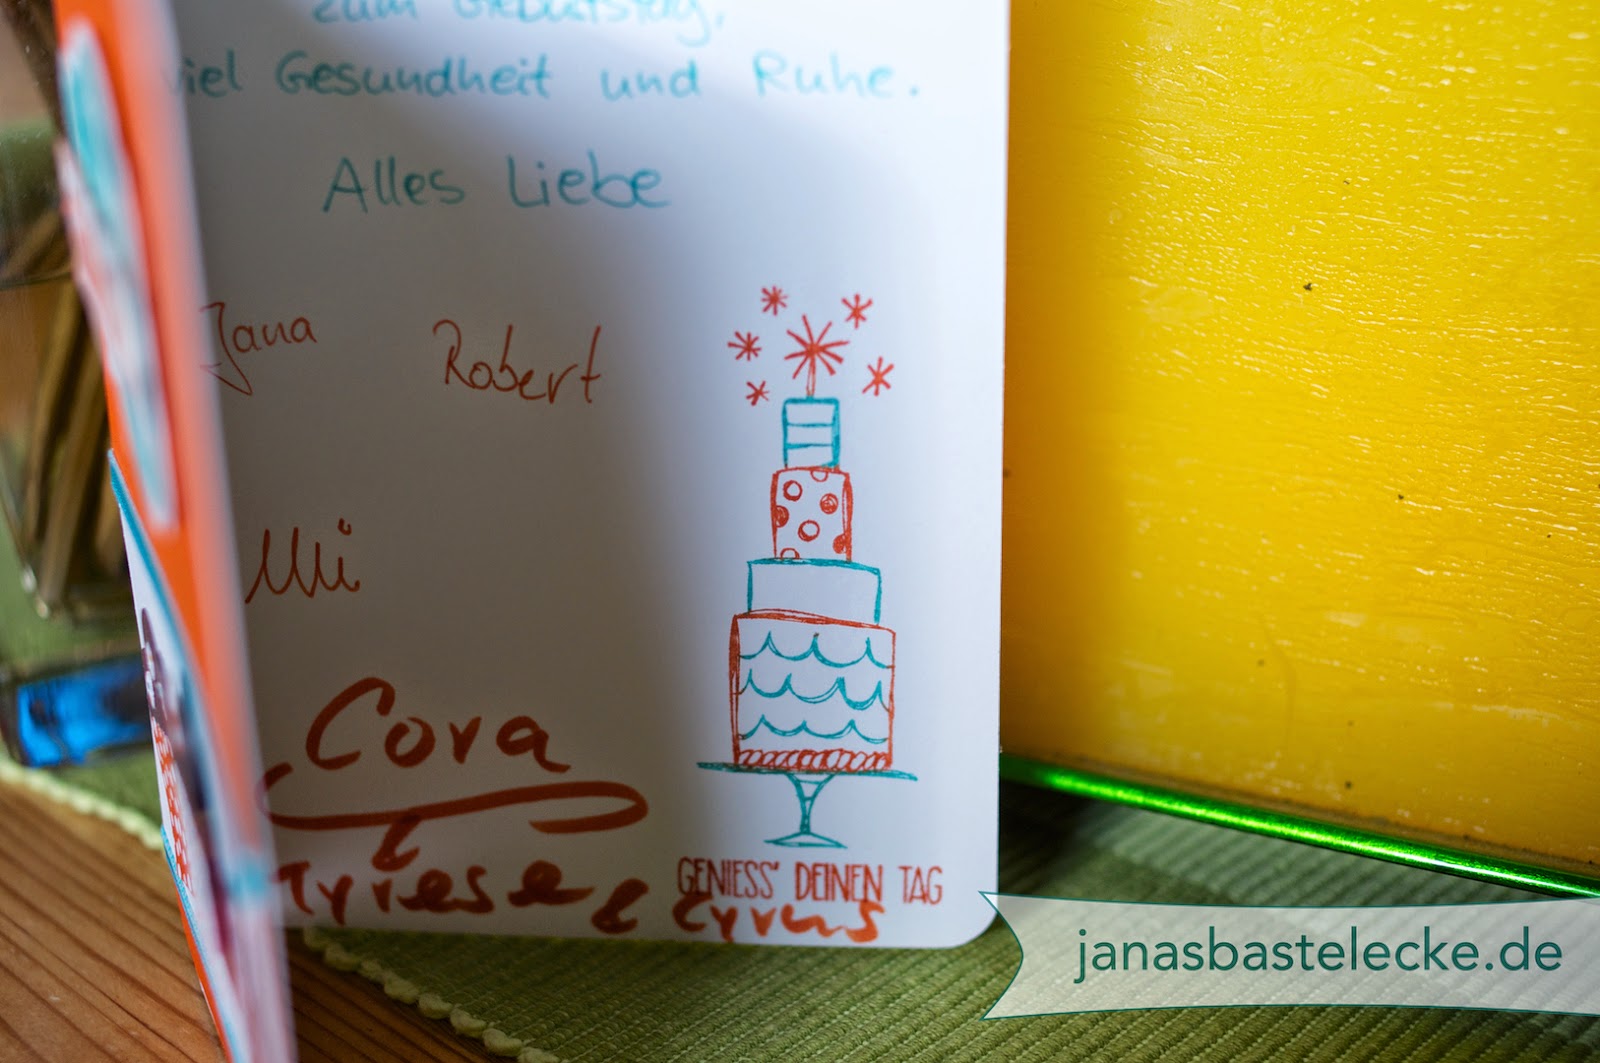 zum Geburtstag,
viel Gesundheit und Ruhe.
Alles Liebe
Jana Robert
Cora
GENIESS' DEINEN TAG
Cyrus
janasbastelecke.de